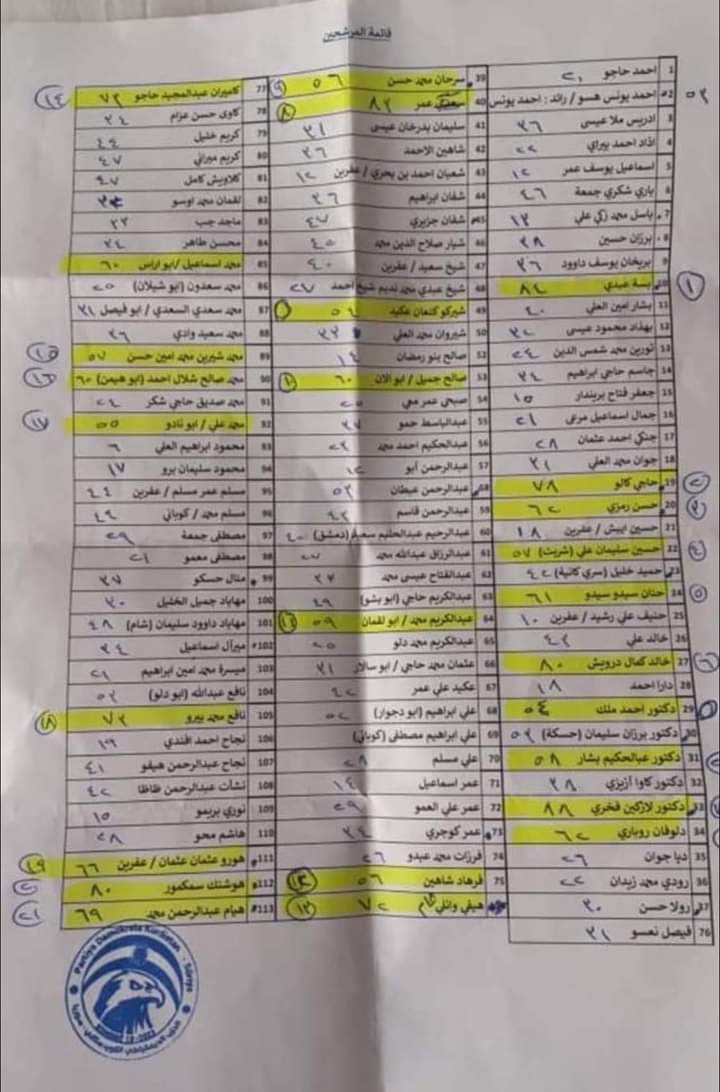 قائمة المرشحين
1 احمد حاجو ٢١
2 احمد يونس هسو / رائد : احمد يونس ٥٢
3 ادريس ملا عيسى ٣٦
4 اذاد احمد بيراي ٢٢
5 اسماعيل يوسف عمر ١٢
6 باري شكري جمعة ٤٦
7 باسل محمد زكي علي ١٢
8 برزان حسين ٢٨
9 بريخان يوسف داوود ٢٦
10 بسة عبدي ٨٤ ١
11 بشار امين العلي ٤٠
12 بهذاد محمود عيسى
13 نورين محمد شمس الدين ٢٤
14 جاسم حاجي ابراهيم ٢٤
15 جعفر فتاح بريندار ١٥
16 جمال اسماعيل مرعي ٢١
17 جنكي احمد عثمان ٢٨
18 جوان محمد العلي ٢١
19 حاجي كالو ٧٨ ٢
20 حسن رمزي ٦٢ ٣
21 حسين ايبش / عفرين ١٨
22 حسين سليمان علي (شريت) ٥٧ ٤
23 حميد خليل (سري كانية) ٤٢
24 حنان سيدو سيدو ٦١ ٥
25 حنيف علي رشيد / عفرين ١٠
26 خالد علي ٤٢
27 خالد كمال درويش ٨٠ ٦
28 دارا احمد ١٨
29 دكتور احمد ملك ٥٤
30 دكتور برزان سليمان (حسكة) ٥٢
31 دكتور عبالحكيم بشار ٥٨
32 دكتور كاوا أزيزي ٢٨
33 دكتور لازكين فخري ٨٨
34 دلوفان روباري ٦٢
35 ديا جوان ٢٦
36 رودي محمد زيدان ٢٢
37 رولا حسن ٣٠
76 فيصل نعسو ٢١
39 سرحان محمد حسن ٥٦ ٩
40 عمر ٨٢ ٨
41 سليمان بدرخان عيسى ٢١
42 شاهين الاحمد ٢٦
43 شعبان احمد بن بحري / عفرين ١٢
44 شفان ابراهيم ٢٦
45 شفان جزيري ٤٧
46 شيار صلاح الدين محمد ٤٥
47 شيخ سعيد / عفرين ٤٠
48 شيخ عبدي محمد نديم شيخ احمد ٢٧
49 شيركو كنعان عكيد ٥٤
50 شيروان محمد العلي
52 صالح بنو رمضان ١٤
53 صالح جميل / ابو الان ٦٠ ١٠
54 صبحي عمر معي ٢٥
55 عبدالباسط حمو ٣٧
56 عبدالحكيم احمد محمد ٢٣
57 عبدالرحمن أبو ١٢
58 عبدالرحمن عبطان ٥٢
59 عبدالرحمن قاسم ٤٢
60 عبدالرحيم عبدالحليم سعيد (دمشق) ٤٠
61 عبدالرزاق عبدالله محمد ٢٧
62 عبدالفتاح عيسى محمد ٢٧
63 عبدالكريم حاجي (ابو بشو) ٤٩
64 عبدالكريم محمد / ابو لقمان ٥٩ ١١
65 عبدالكريم محمد دلو ٢٥
66 عثمان محمد حاجي / ابو سالار ٢١
67 عكيد علي عمر ٤٢
68 علي ابراهيم (ابو دجوار) ٥٢
69 علي ابراهيم مصطفى (كوباني)
70 علي مسلم ٢٨
71 عمر اسماعيل ١٤
72 عمر علي العمو ٢٩
73 عمر كوجري ٢٤
74 فرزات محمد عبدو ٢٦
75 فرهاد شاهين ٥٦
هيفي وانلي ٧٢ ١٣
77 كاميران عبدالمجيد حاجو ٧٢ ١٤
78 كاوى حسن عزام ٢٤
79 كريم خليل ٤٤
80 كريم ميراني ٤٧
81 كلاويش كامل ٤٧
82 لقمان محمد اوسو
83 ماجد جب ٢٢
84 محسن طاهر ٢٤
85 محمد اسماعيل / ابو اراس ٦٠
86 محمد سعدون (ابو شيلان) ٢٥
87 محمد سعدي السعدي / ابو فيصل ٢١
88 محمد سعيد وادي ٢٦
89 محمد شيرين محمد امين حسن ٥٧ ١٥
90 محمد صالح شلال احمد (ابو هيمن) ٦٠ ١٦
91 محمد صديق حاجي شكر ٢٤
92 محمد علي / ابو نادو ٥٥ ١٧
93 محمود ابراهيم العلي ٦
94 محمود سليمان برو ١٧
95 مسلم عمر مسلم / عفرين ٤٤
96 مسلم محمد / كوباني ٤٩
97 مصطفى جمعة ٢٩
98 مصطفى معمو ٢١
99 منال حسكو ٢٧
100 مهاباد جميل الخليل ٣٠
101 مهاباد داوود سليمان (شام) ٤٨
102 ميرآل اسماعيل ٢٤
103 ميسرة محمد امين ابراهيم ٢١
104 نافع عبدالله (ابو دلو) ٥٢
105 نافع محمد بيرو ٧٢ ١٨
106 نجاح احمد افندي ٢٩
107 نجاح عبدالرحمن هيفو ٤١
108 نشأت عبدالرحمن ظاظا ٤٢
109 نوري بريمو ١٥
110 هاشم محو ٢٨
111 هورو عثمان عثمان / عفرين ٦٦ ١٩
112 هوشنك سمكمور ٨٠ ٢٠
113 هيام عبدالرحمن محمد ٦٩ ٢١
Partiya Demokrata Kurdistan - Sûriya